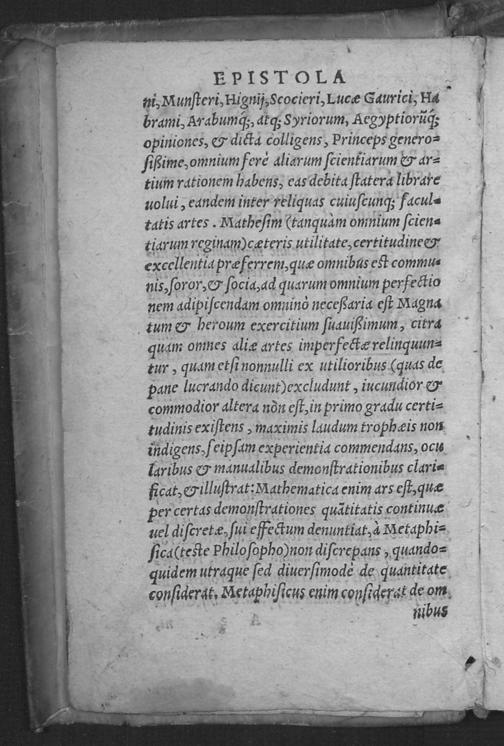 EPISTOLA
ni, Munſteri, Hignij, Scocieri, Lucæ Gaurici, Ha
brami, Arabumq́;, atq; Syriorum, Aegyptiorũq́;
opiniones, & dicta colligens, Princeps genero=
ſißime, omnium ferè aliarum ſcientiarum & ar=
tium rationem habens, eas debita ſtatera librare
uolui, eandem inter reliquas cuiuſcunq; facul=
tatis artes. Matheſim (tanquàm omnium ſcien=
tiarum reginam) cæteris utilitate, certitudine &
excellentia præferrem, quæ omnibus eſt commu=
nis, ſoror, & ſocia, ad quarum omnium perfectio
nem adipiſcendam omninò neceßaria eſt Magna
tum & heroum exercitium ſuauißimum, citra
quam omnes aliæ artes imperfectæ relinquun=
tur, quam etſi nonnulli ex utilioribus (quas de
pane lucrando dicunt) excludunt, iucundior &
commodior altera nõn eſt, in primo gradu certi=
tudinis exiſtens, maximis laudum trophæis non
indigens, ſeipſam experientia commendans, ocu
laribus & manualibus demonſtrationibus clari=
ficat, & illuſtrat: Mathematica enim ars eſt, quæ
per certas demonſtrationes quãtitatis continuæ
uel diſcretæ, ſui effectum denuntiat, à Metaphi=
ſica (teſte Philoſopho) non diſcrepans, quando=
quidem utraque ſed diuerſimodè de quantitate
conſiderat. Metaphiſicus enim conſiderat de om
nibus